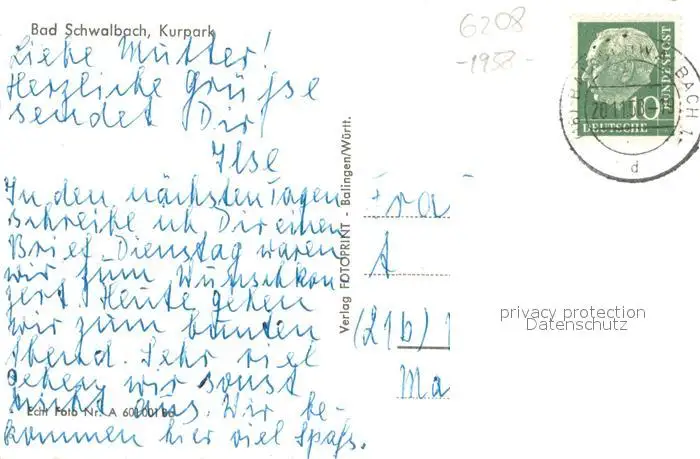 Bad Schwalbach, Kurpark
Liebe Mutter!
Herzliche Grüße
sendet Dir
Ilse
In den nächsten Tagen
schreibe ich Dir einen
Brief. Dienstag waren
wir zum Wunschkon
zert. Heute gehen
wir zum bunten
Abend. Sehr viel
gehen wir sonst
nicht aus. Wir be-
kommen hier viel Spaß.
Echt Foto Nr. A
Verlag FOTOPRINT - Balingen/Württ.
6208
-1958-
BACH 1
20.11.58
d
10
DEUTSCHE
BUNDESPOST
Fra
A
(21b)
Ma
privacy protection
Datenschutz